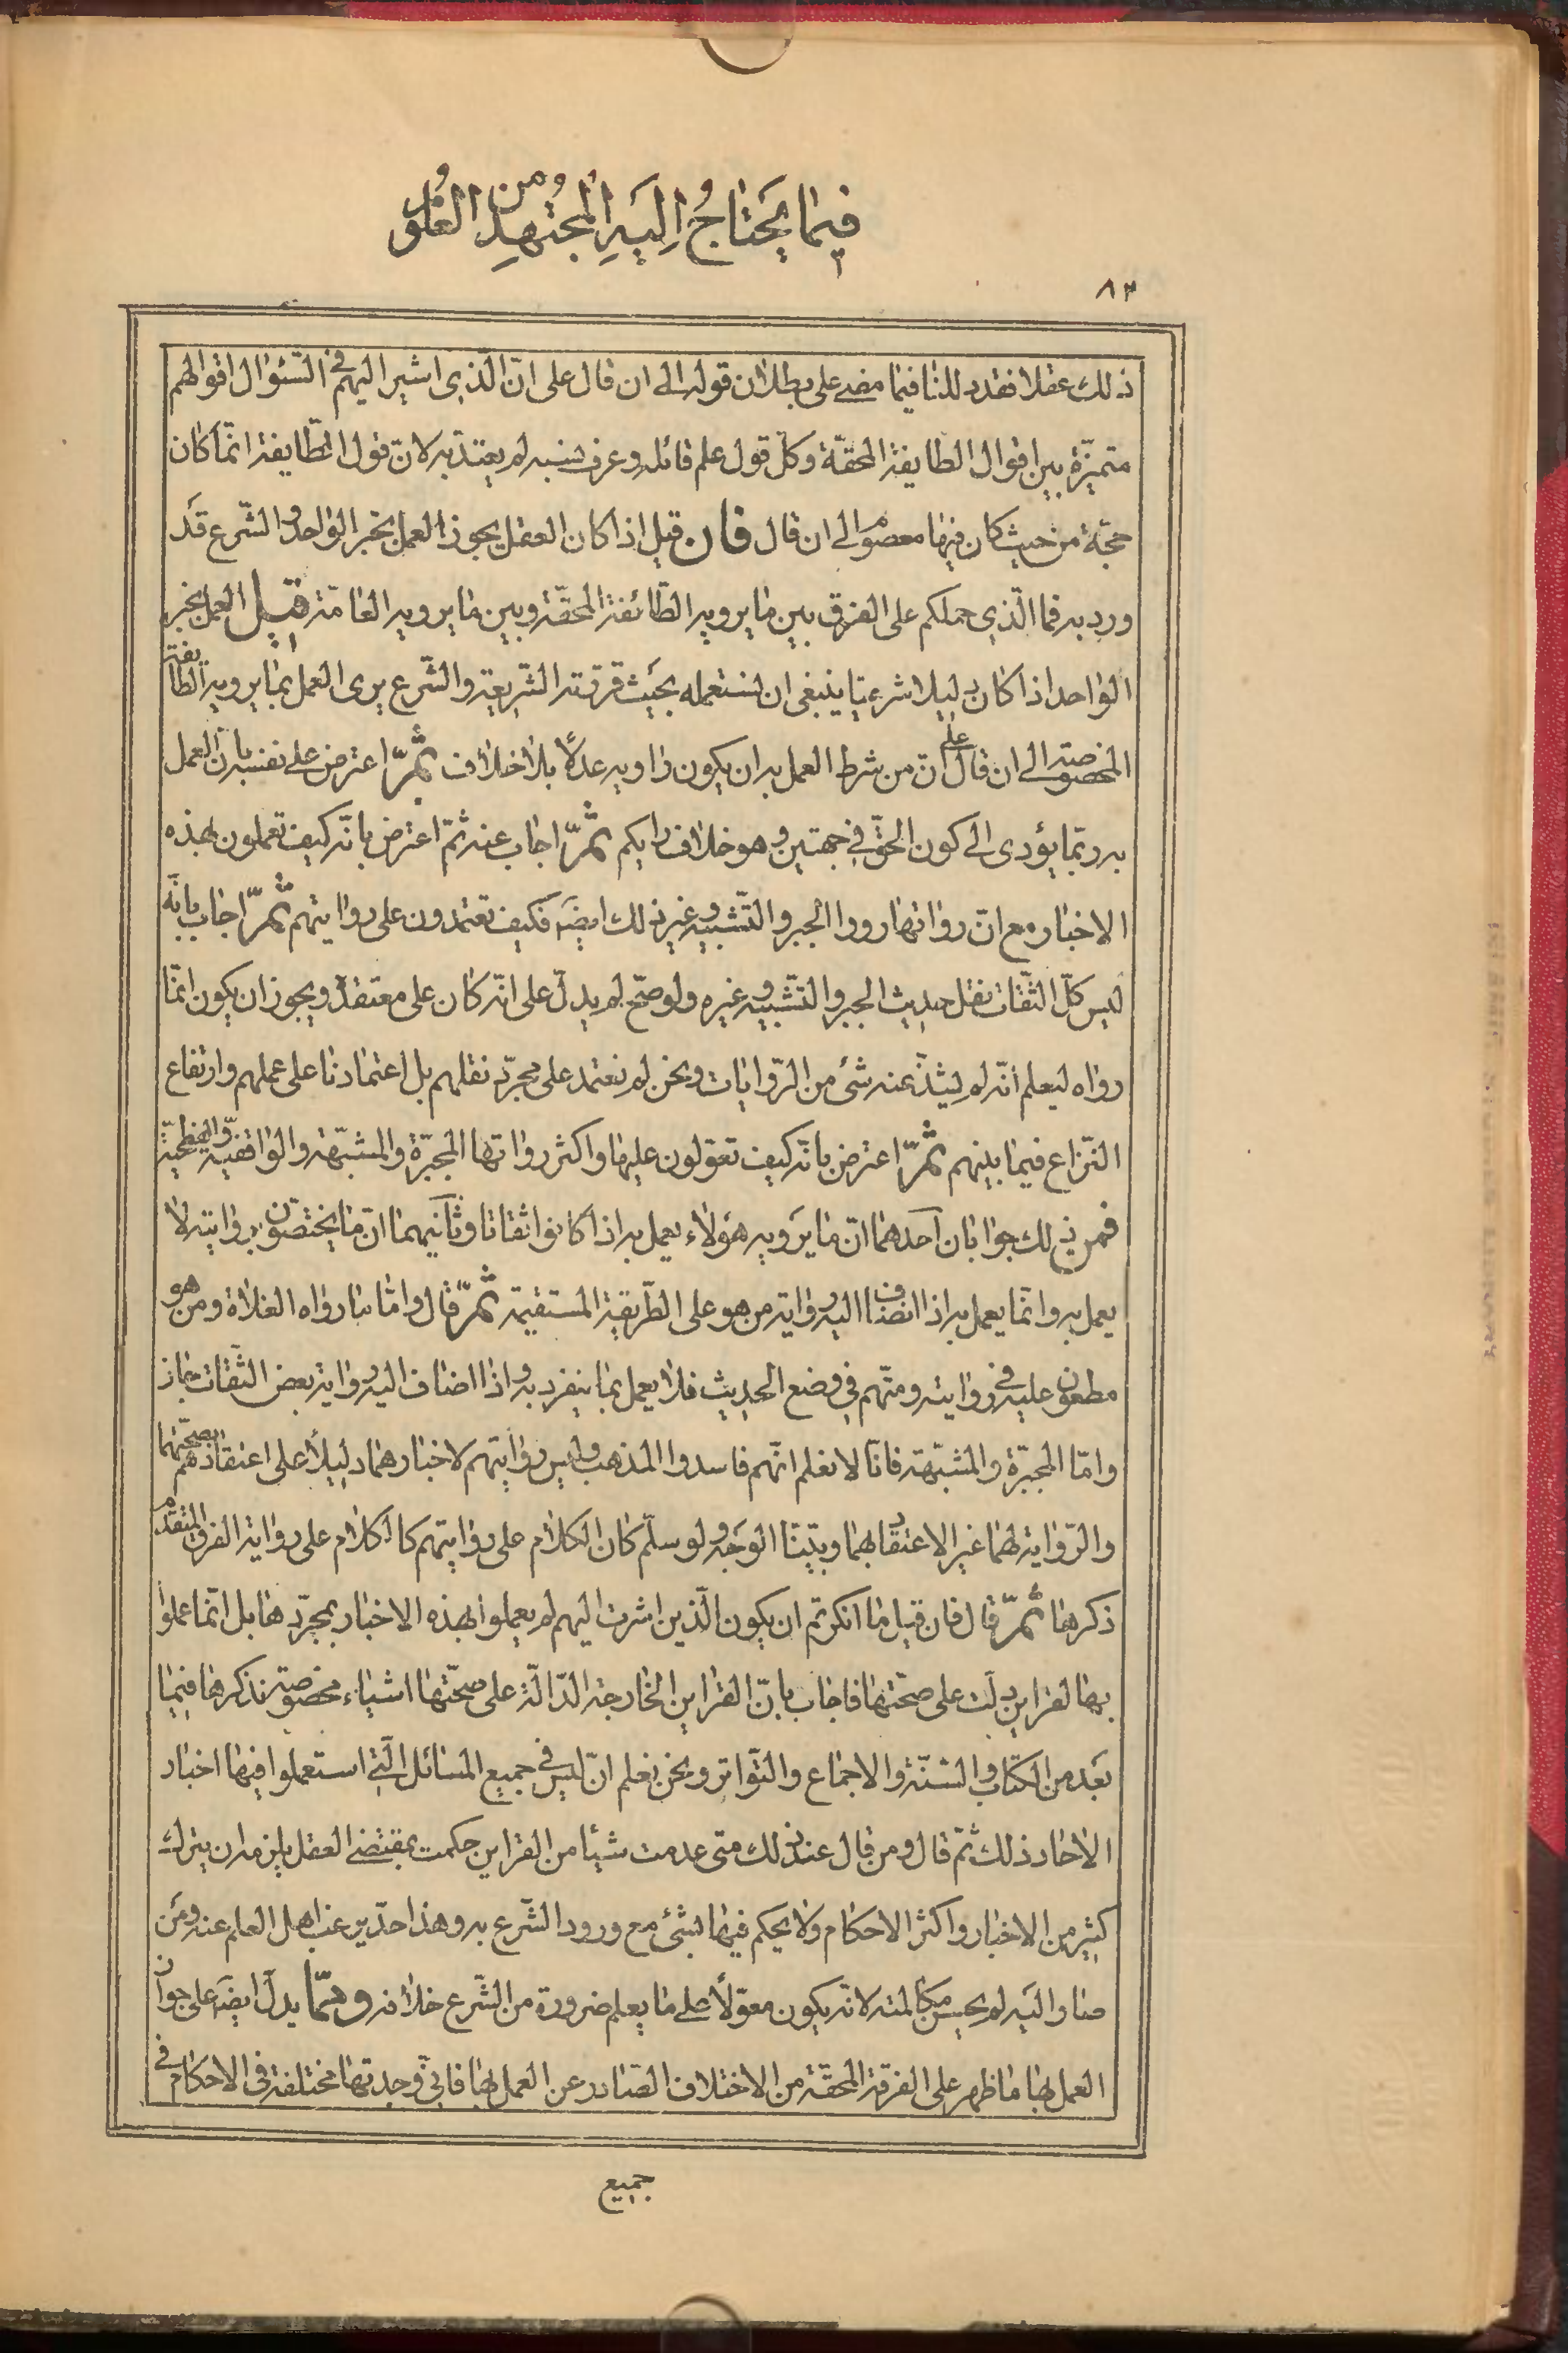 فيما يحتاج اليه المجتهد من العلوم
٨٢
ذلك عقلا فقد دللنا فيما مضى على بطلان قوله الى ان قال على انّ الّذي اشير اليهم في السّئوال اقوالهم
متميّزة بين اقوال الطايفة المحقّة وكلّ قول علم قائله وعرف نسبه لم يعتدّ به لانّ قول الطّايفة انّما كان
حجّة من حيث كان فيها معصوم الى ان قال فان قيل اذا كان العقل يجوز العمل بخبر الواحد والشّرع قد
ورد به فما الّذي حملكم على الفرق بين ما يرويه الطّائفة المحقّة وبين ما يرويه العامّة قيل العمل بخبر
الواحد اذا كان دليلا شرعيّا ينبغى ان نستعمله بحيث قررته الشّريعة والشّرع يرى العمل بما يرويه الطايفة
المخصوصة الى ان قال على انّ من شرط العمل به ان يكون راويه عدلًا بلا خلاف ثمّ اعترض على نفسه بانّ العمل
به ربّما يؤدى الى كون الحقّ في جهتين وهو خلاف رايكم ثمّ اجاب عنه ثمّ اعترض بانّه كيف تعملون بهذه
الاخبار مع انّ رواتها رووا الجبر والتّشبيه وغير ذلك ايضَ فكيف تعتمدون على روايتهم ثمّ اجاب بانّه
ليس كلّ الثّقات نقل حديث الجبر والتّشبيه وغيره ولو صحّ لم يدلّ على انّه كان على معتقده ويجوز ان يكون انّما
رواه ليعلم انّه لم يشذّ عنه شئ من الرّوايات ونحن لم نعتمد على مجرّد نقلهم بل اعتمادنا على عملهم وارتفاع
النّزاع فيما بينهم ثمّ اعترض بانّه كيف تعوّلون عليها واكثر رواتها المجبّرة والمشبّهة والواقفيّة والفطحيّة
فمن ذلك جوابان احدهما انّ ما يرويه هؤلاء يعمل به اذا كانوا ثقاتا وثانيهما انّ ما يختصّون بروايته لا
يعمل به وانّما يعمل به اذا انضاف اليه رواية من هو على الطّريقة المستقيمة ثمّ قال وامّا ما رواه الغلاة ومن هو
مطعون عليه في روايته ومتّهم في وضع الحديث فلا يعمل بما ينفرد به واذا اضاف اليه رواية بعض الثّقات جاز
وامّا المجبّرة والمشبّهة فانّا لا نعلم انّهم فاسدوا المذهب وليس روايتهم لاخبارهما دليلًا على اعتقادهم بصحّتهما
والرّواية لهما غير الاعتقاد بهما وبيّنّا الوجه ولو سلّم كان الكلام على روايتهم كالكلام على رواية الفرق المتقدّم
ذكرها ثمّ قال فان قيل ما انكرتم ان يكون الّذين اشرت اليهم لم يعملوا بهذه الاخبار بمجرّدها بل انّما عملوا
بها لقراين دلّت على صحّتها فاجاب بانّ القراين الخارجة الدّالّة على صحّتها اشياء مخصوصة نذكرها فيما
بعد من الكتاب والسّنّة والاجماع والتّواتر ونحن نعلم انّ ليس في جميع المسائل الّتي استعملوا فيها اخبار
الاحاد ذلك ثمّ قال ومن قال عند ذلك متى عدمت شيئا من القراين حكمت بمقتضى العقل يلزمه ان يترك
كثير من الاخبار واكثر الاحكام ولا يحكم فيها بشئ مع ورود الشّرع به وهذا حدّ يرغب اهل العلم عنه ومن
صار اليه لم يحسن مكالمته لانّه يكون معوّلًا على ما يعلم ضرورة من الشّرع خلافه وممّا يدلّ ايضَ على جواز
العمل بها ما ظهر على الفرقة المحقّة من الاختلاف الصّادر عن العمل بها فانّي وجدتها مختلفة في الاحكام في
جميع